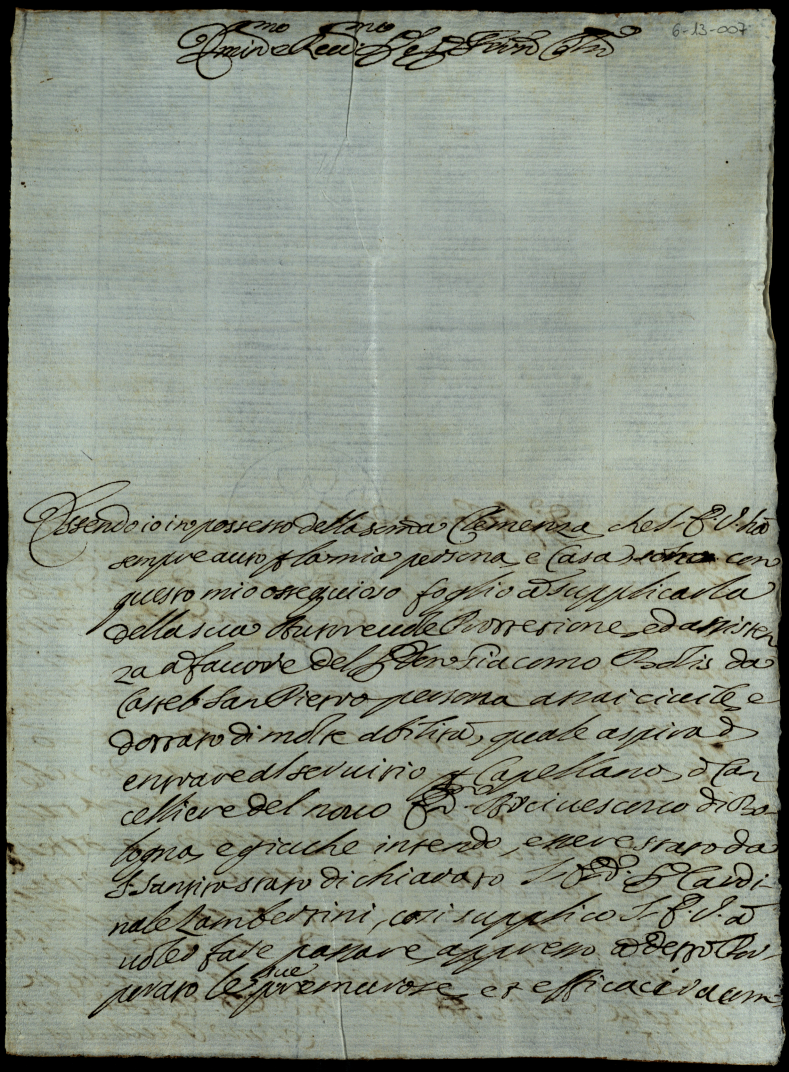 6-13-007
Emin.mo e Rev.mo Sig.re Sig.re Pron. Col.mo
Essendo io in possesso della somma Clemenza che l'E. V. ha
sempre auto p. la mia persona, e Casa, con
questo mio ossequioso foglio a supplicarla
della sua Autoreuole Prottezione, ed assisten
za a fauore del Sig. Don Giacomo Bolis da
Castel San Pietro persona assai ciuile, e
dottato di molte abilità, quale aspira d
entrare al seruitio p. Capellano, o Can
celliere del nouo Arciuescouo di Bo-
logna, e giache intendo, essere stato da
S. Santità stato dichiarato Sig. Cardi-
nale Lambertini, cosi supplico l'E. V. a
uoler fare passare appresso a detto Por
porato le sue premurose, et efficaci racom-